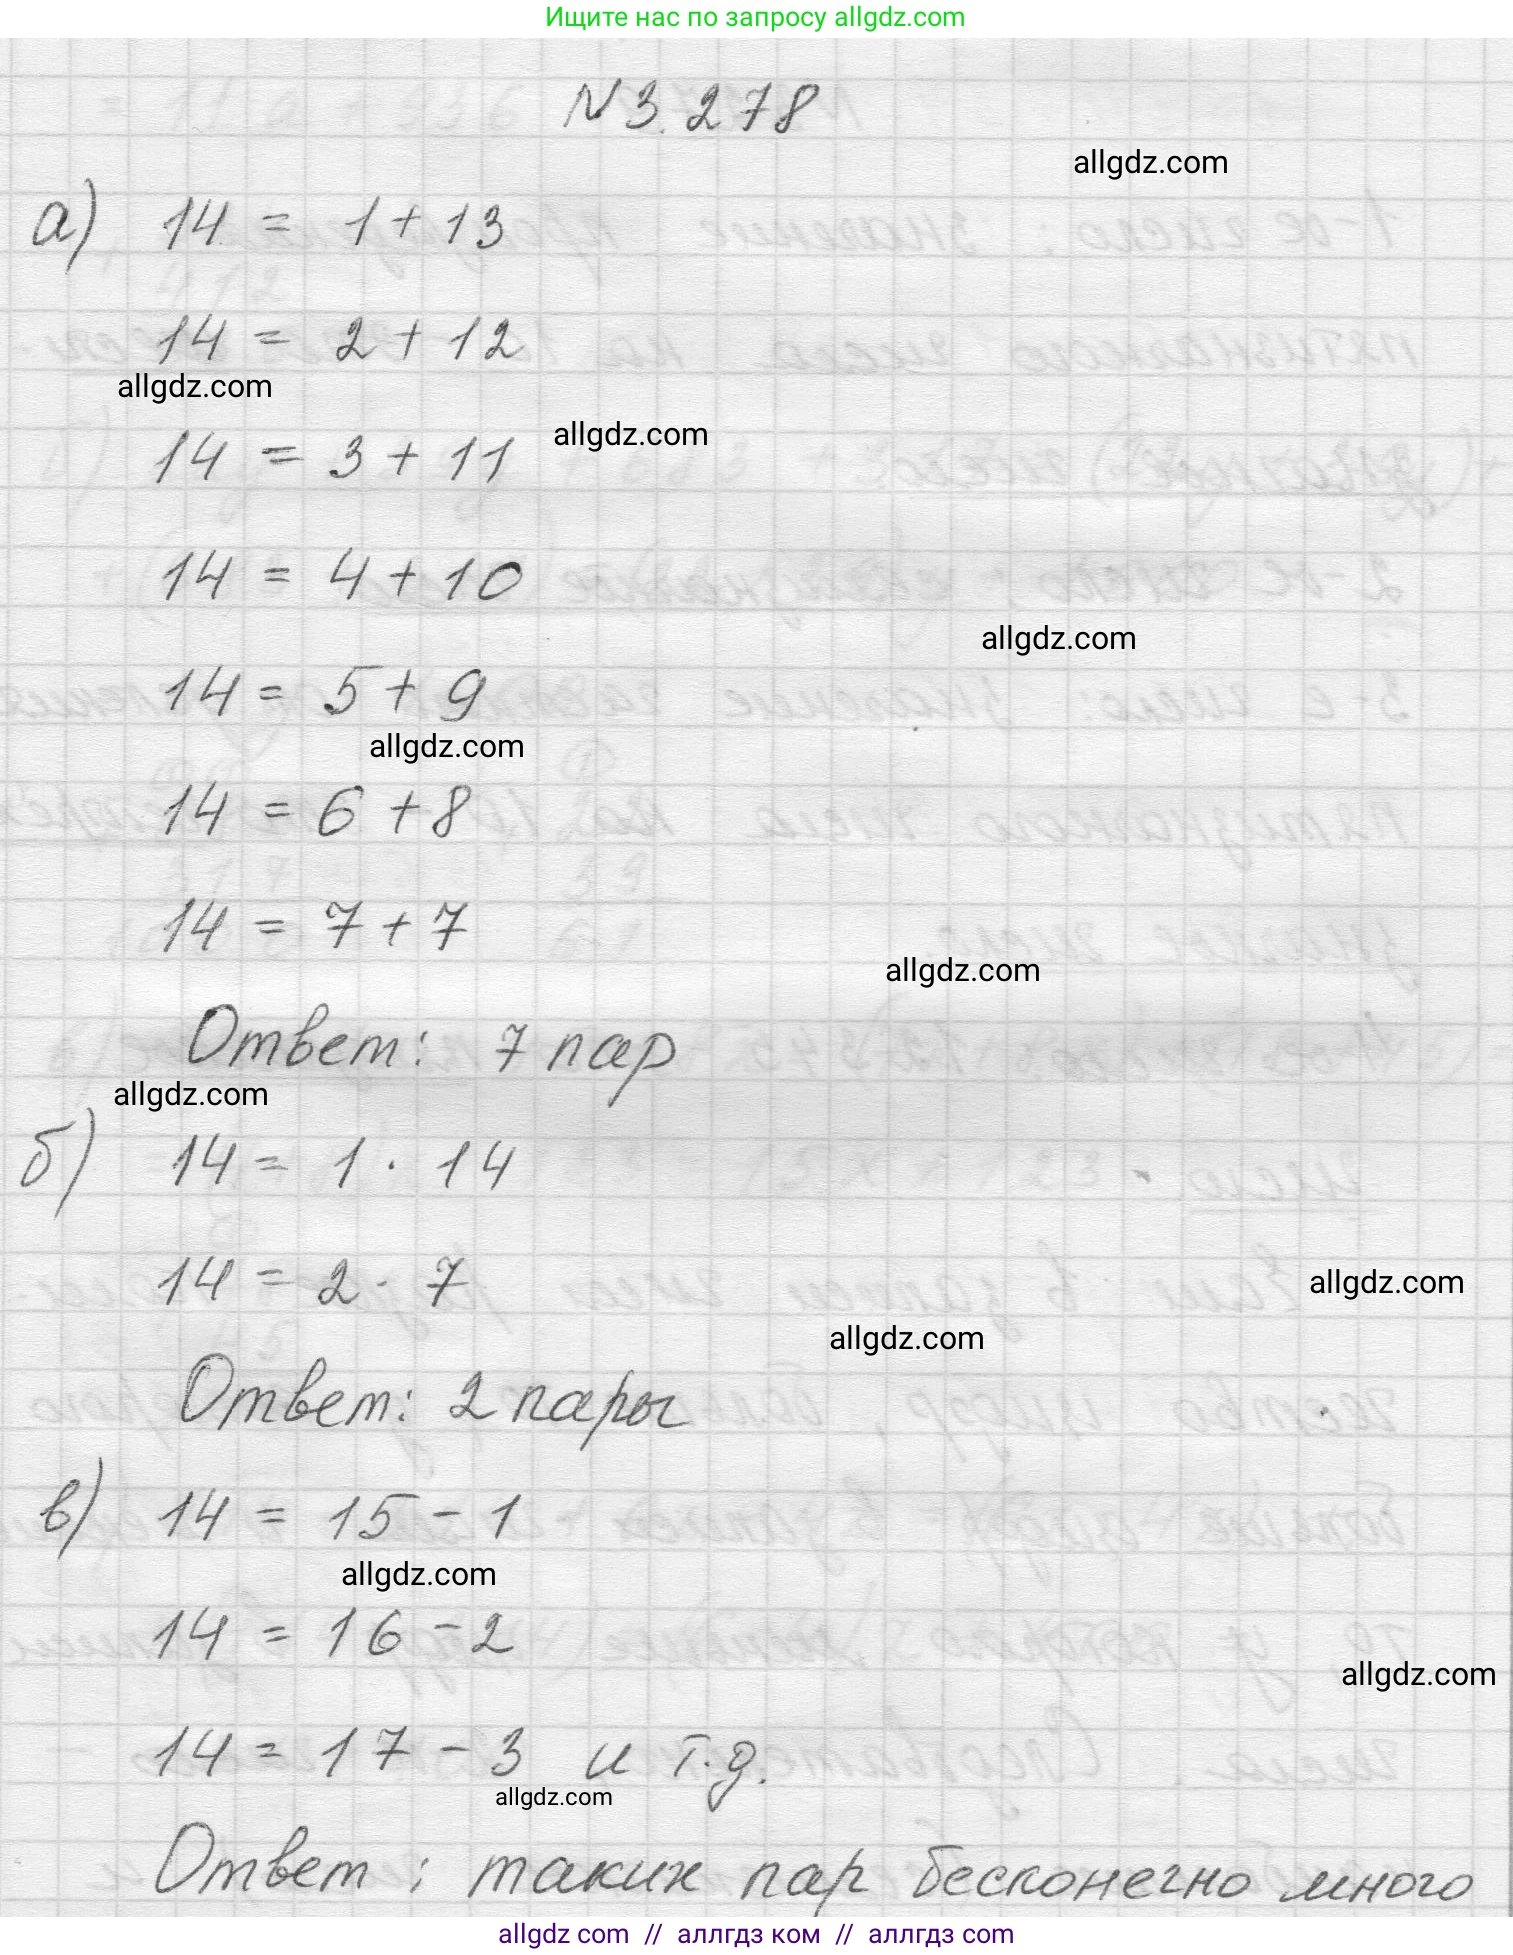 Ищите нас по запросу allgdz.com
N 3.278
allgdz.com
а) 14 = 1 + 13
14 = 2 + 12
allgdz.com
allgdz.com
14 = 3 + 11
14 = 4 + 10
allgdz.com
14 = 5 + 9
allgdz.com
14 = 6 + 8
14 = 7 + 7
allgdz.com
Ответ: 7 пар
allgdz.com
б) 14 = 1 · 14
14 = 2 · 7
allgdz.com
allgdz.com
Ответ: 2 пары
в) 14 = 15 - 1
allgdz.com
14 = 16 - 2
allgdz.com
14 = 17 - 3 и т.д.
allgdz.com
Ответ: таких пар бесконечно много
allgdz com // аллгдз ком // аллгдз com